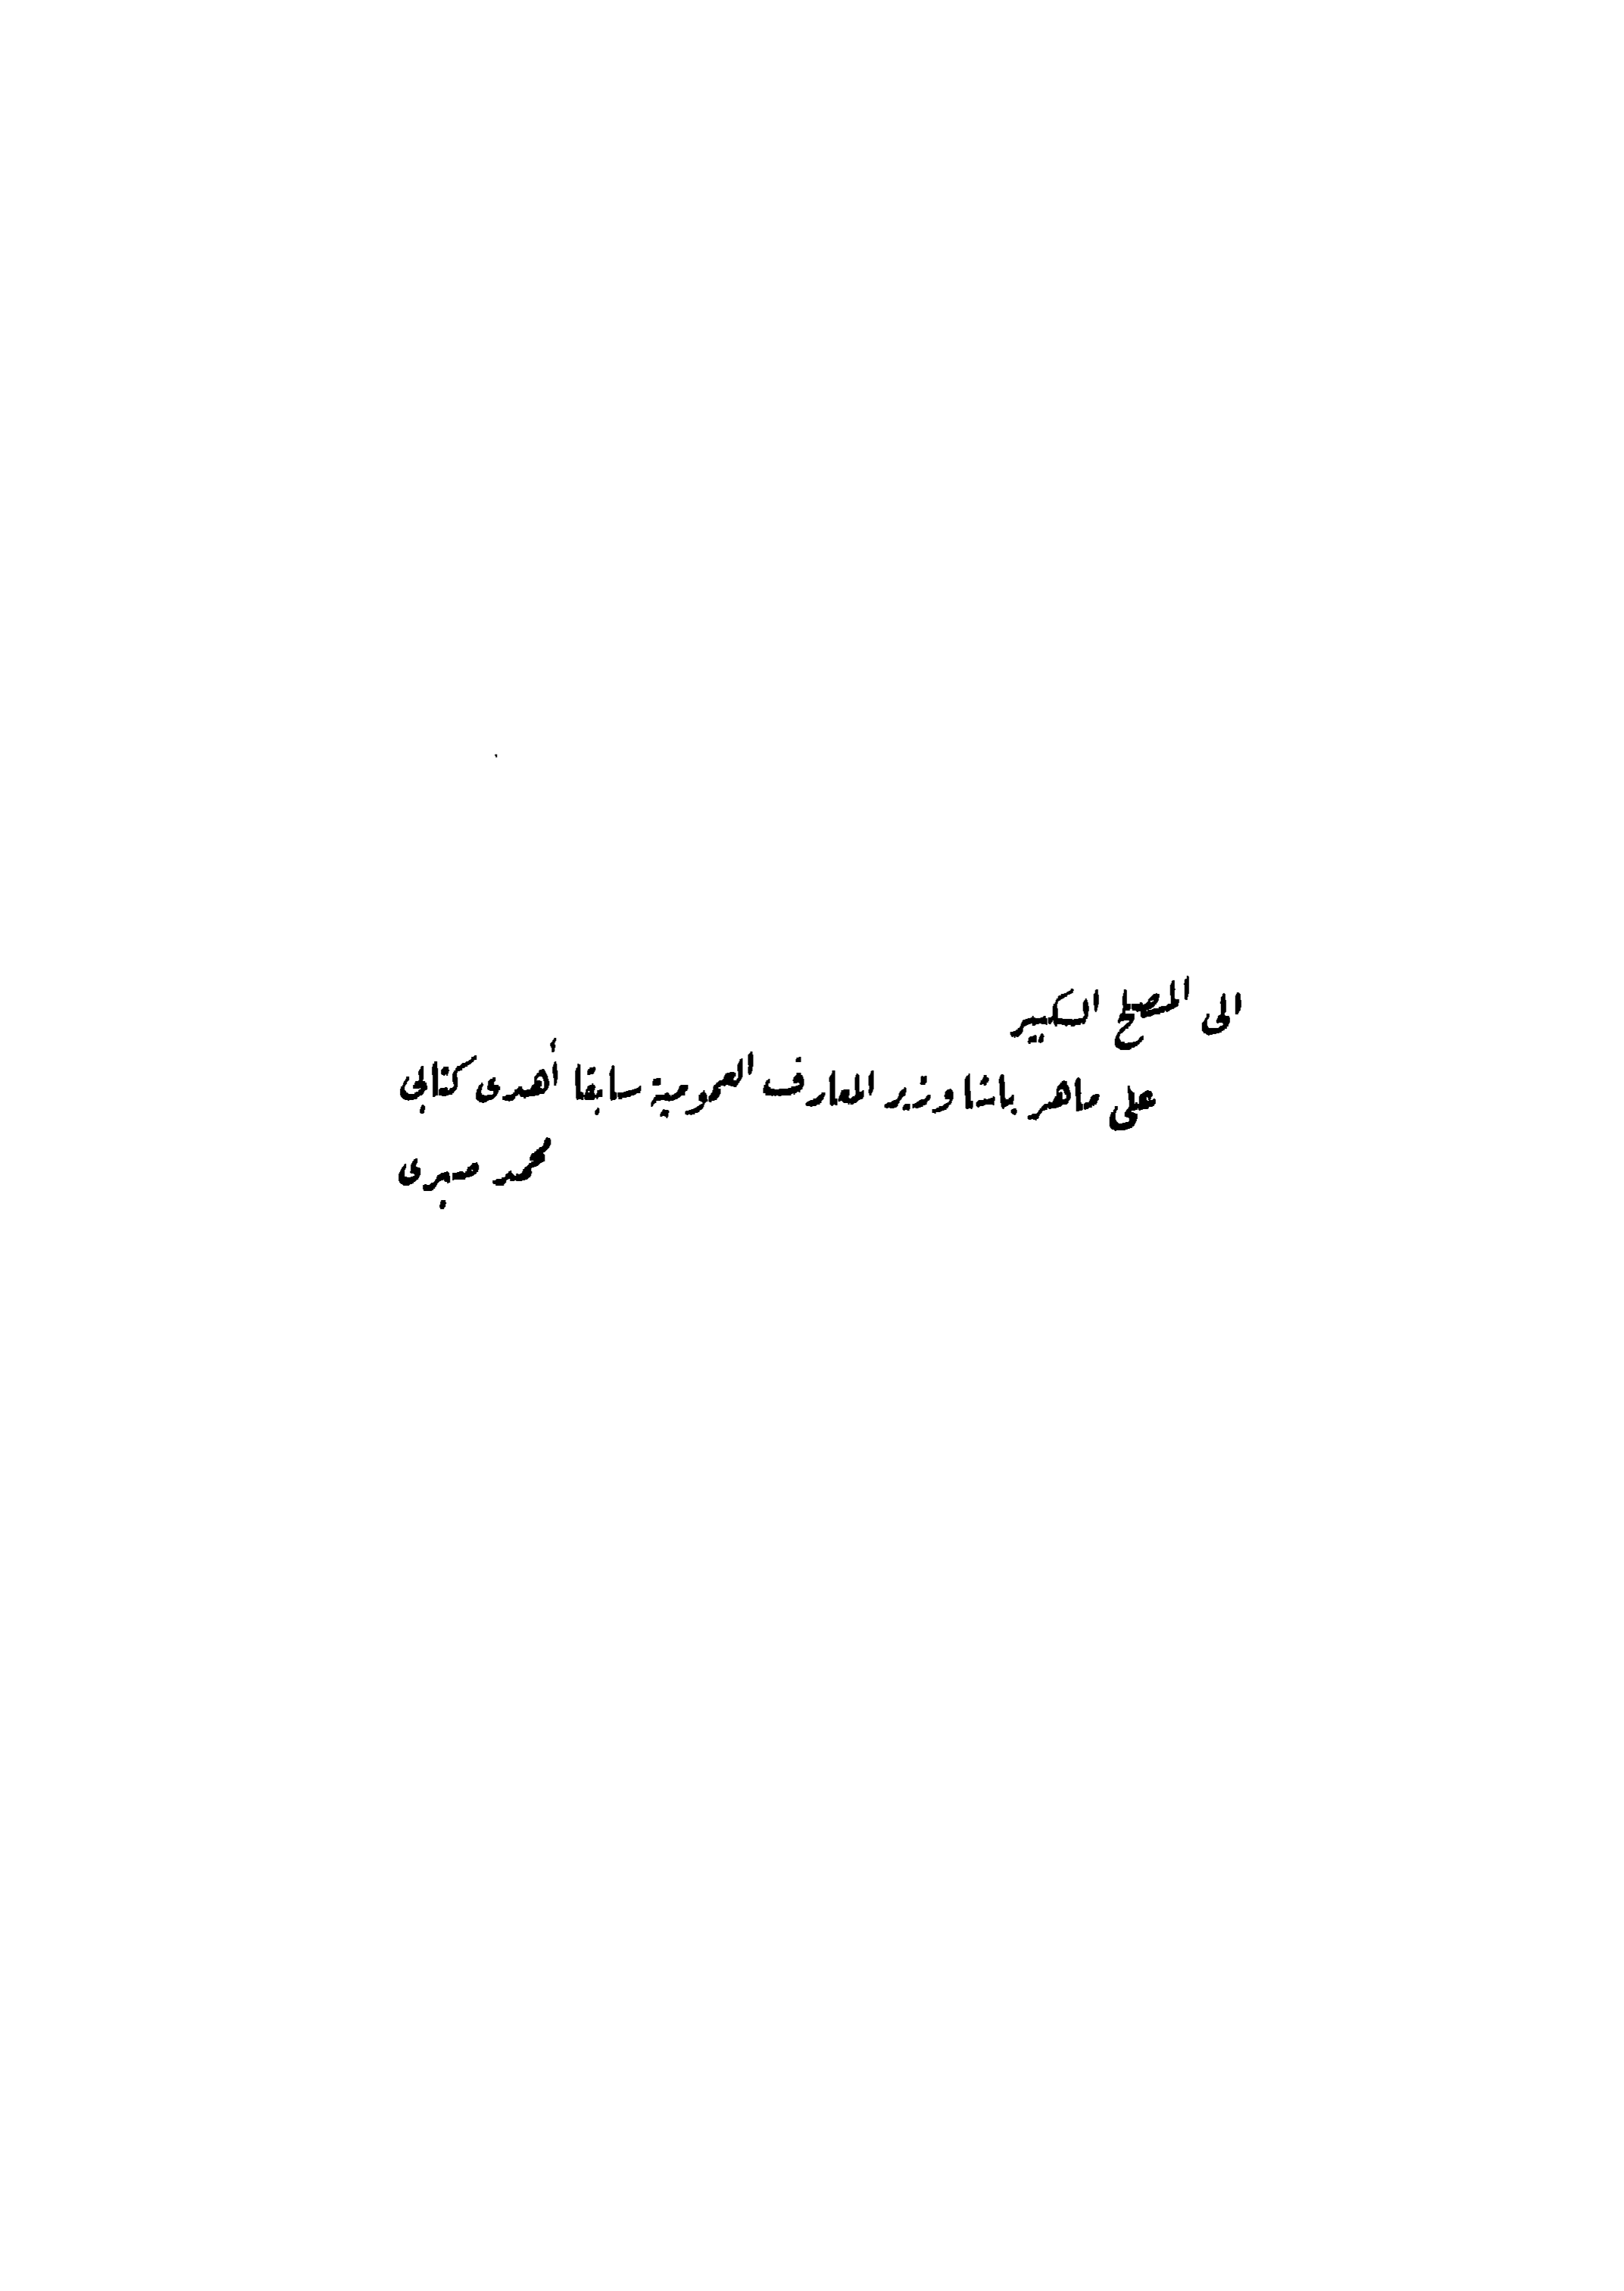 الى المصلح الكبير
على ماهر باشا وزير المعارف العمومية سابقا أهدى كتابى
محمد صبرى